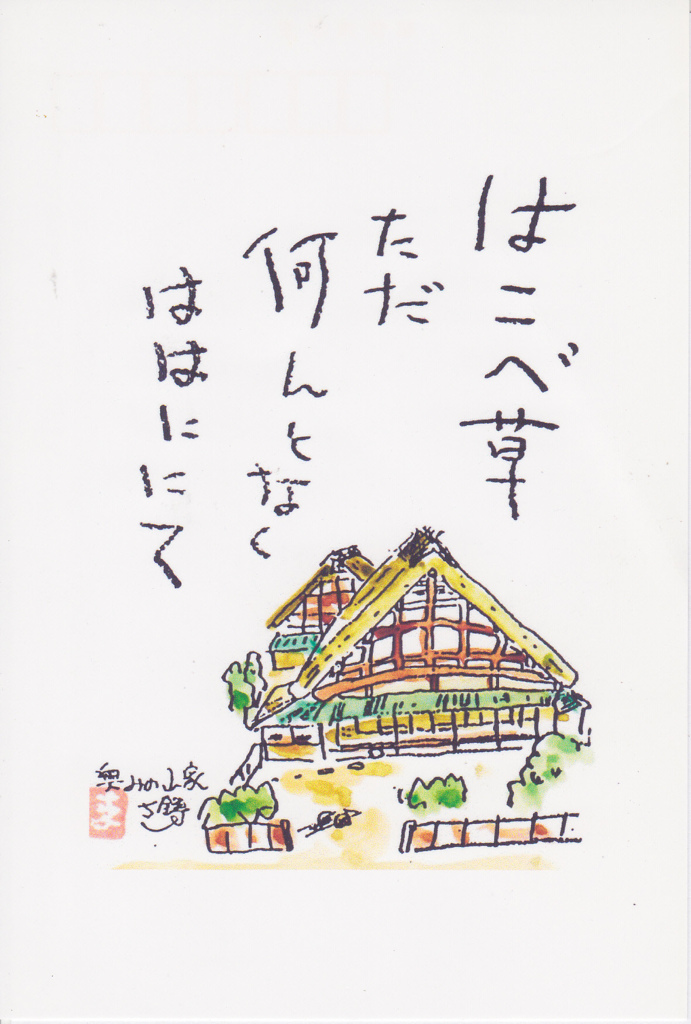 はこべ草
ただ
何んとなく
ははににて
奥みの山家